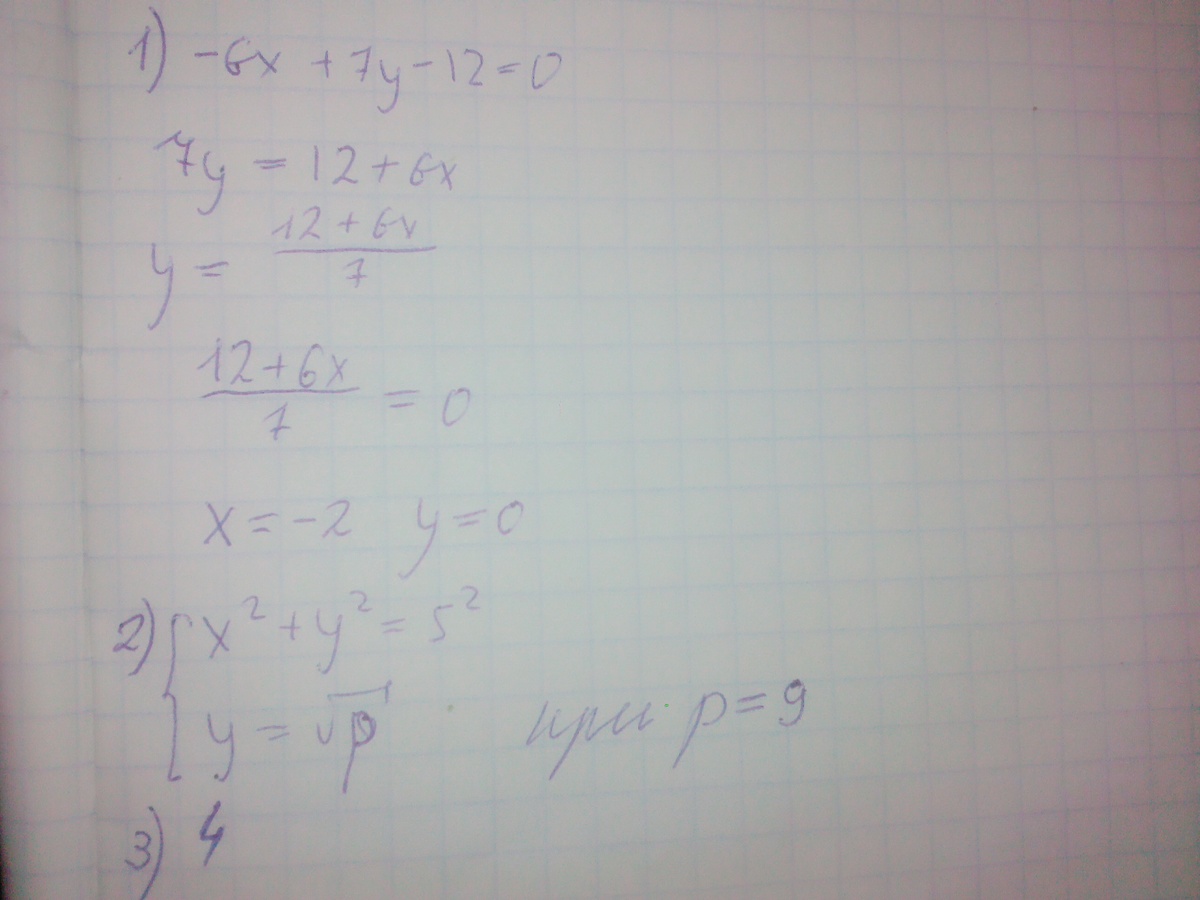 1) -6x + 7y - 12 = 0
7y = 12 + 6x
y = 12 + 6x / 7
12 + 6x / 7 = 0
x = -2 y = 0
2) { x² + y² = 5²
y = √p при p = 9
3) 4